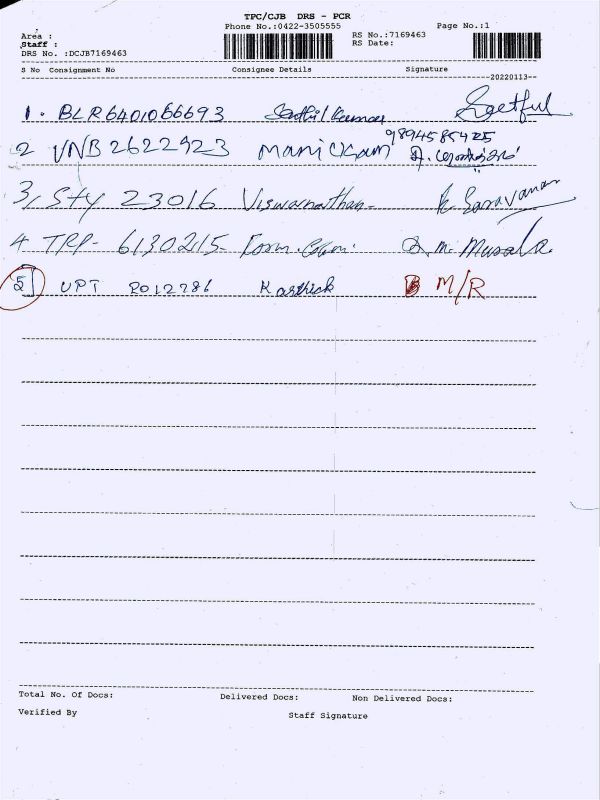 TPC/CJB DRS - PCR
Phone No.:0422-3505555 Page No.:1
Area : RS No.:7169463
Staff : RS Date:
DRS No. :DCJB7169463
S No Consignment No Consignee Details Signature
20220113
1. BLR6401066693 Senthil Kumar
9894585425
2 VNB 2622923 Manickam
3, Sty 23016 Viswanathan - K Saravanan
4 TRP - 6130215-
5 UPT 2012786 Karthick M/R
Total No. Of Docs: Delivered Docs: Non Delivered Docs:
Verified By Staff Signature